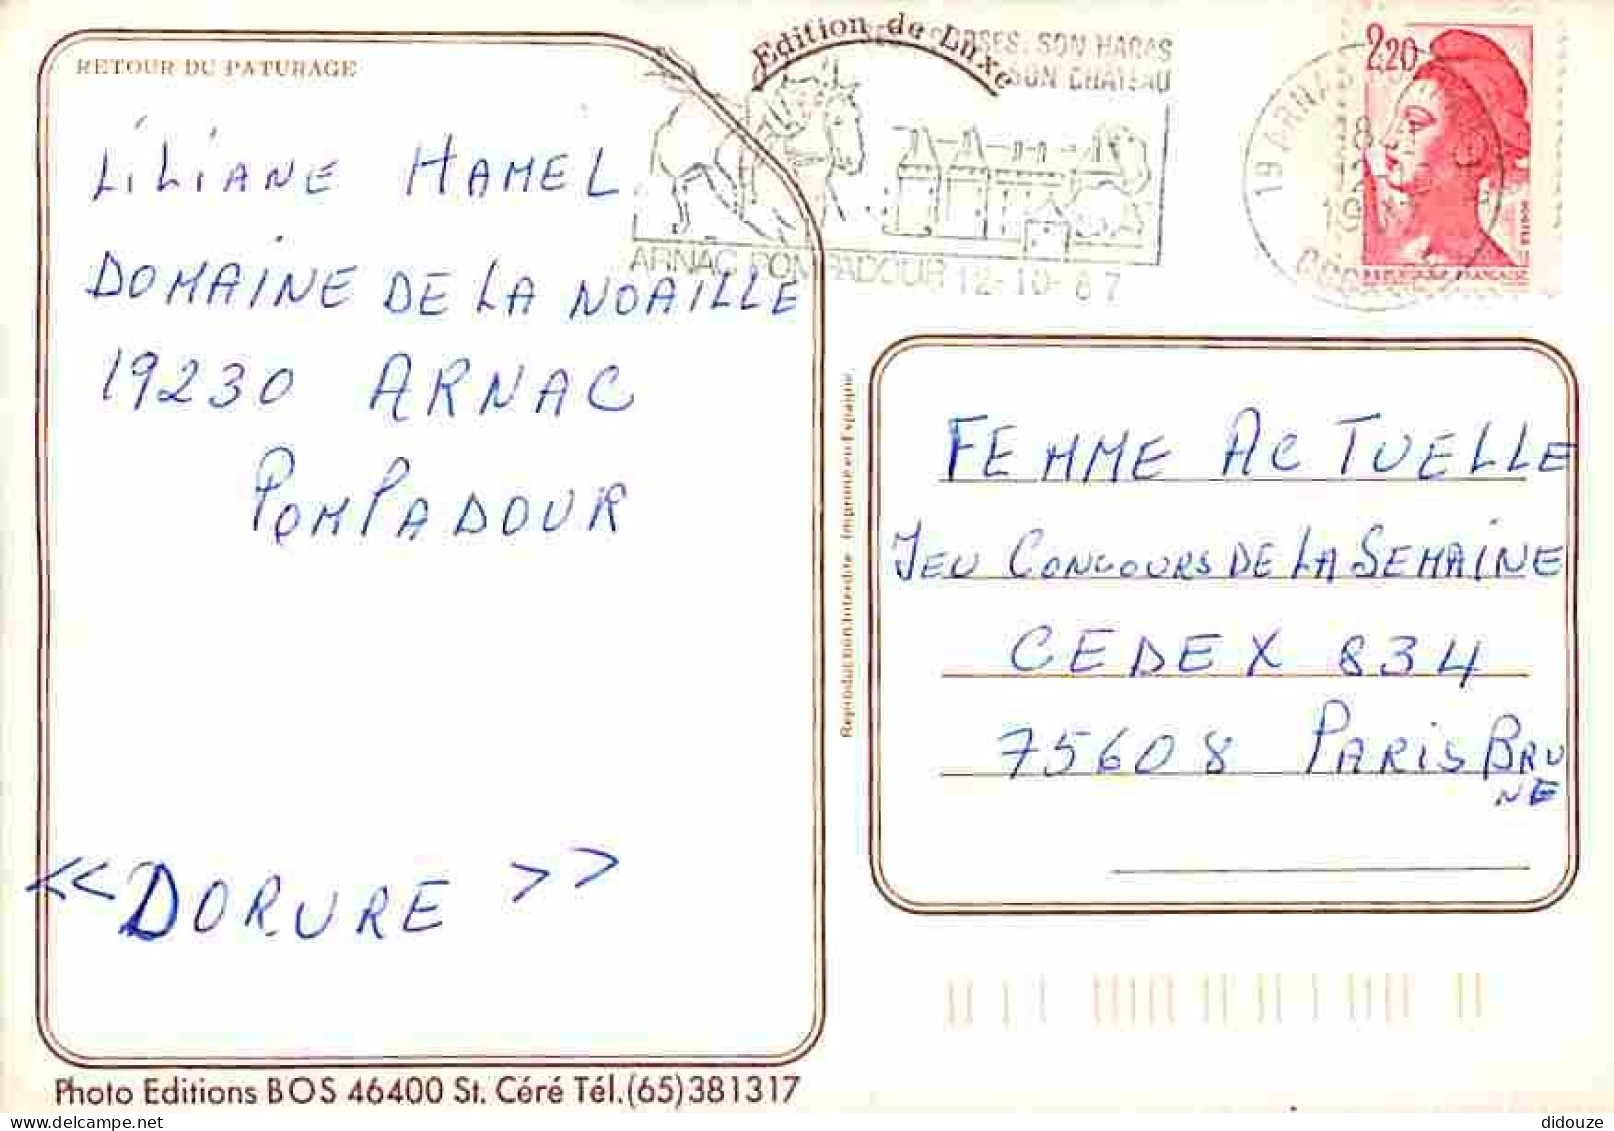 RETOUR DU PATURAGE
Edition de Luxe
SON HARAS
SON CHATEAU
ARNAC POMPADOUR 12-10-87
19 ARNAC
2,20
REPUBLIQUE FRANÇAISE
LILIANE HAMEL
DOMAINE DE LA NOAILLE
19230 ARNAC
POMPADOUR
<< DORURE >>
Reproduction Interdite. Imprimé en Espagne.
FEMME ACTUELLE
JEU CONCOURS DE LA SEMAINE
CEDEX 834
75608 PARIS BRU
NE
Photo Editions BOS 46400 St. Céré Tél.(65)381317
didouze